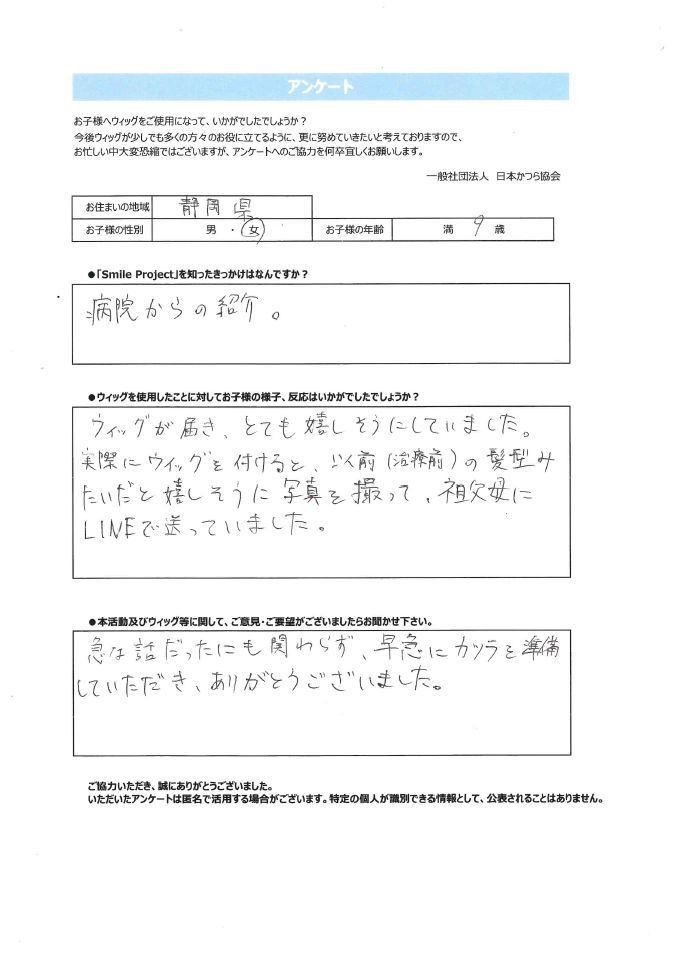 アンケート
お子様へウィッグをご使用になって、いかがでしたでしょうか？
今後ウィッグが少しでも多くの方々のお役に立てるように、更に努めていきたいと考えておりますので、
お忙しい中大変恐縮ではございますが、アンケートへのご協力を何卒宜しくお願いします。
一般社団法人 日本かつら協会
お住まいの地域 静岡県
お子様の性別 男 ・ 女 お子様の年齢 満 9 歳
●「Smile Project」を知ったきっかけはなんですか？
病院からの紹介。
●ウィッグを使用したことに対してお子様の様子、反応はいかがでしたでしょうか？
ウィッグが届き、とても嬉しそうにしていました。
実際にウィッグを付けると、以前（治療前）の髪型み
たいだと嬉しそうに写真を撮って、祖父母に
LINEで送っていました。
●本活動及びウィッグ等に関して、ご意見・ご要望がございましたらお聞かせ下さい。
急な話だったにも関わらず、早急にカツラを準備
していただき、ありがとうございました。
ご協力いただき、誠にありがとうございました。
いただいたアンケートは匿名で活用する場合がございます。特定の個人が識別できる情報として、公表されることはありません。